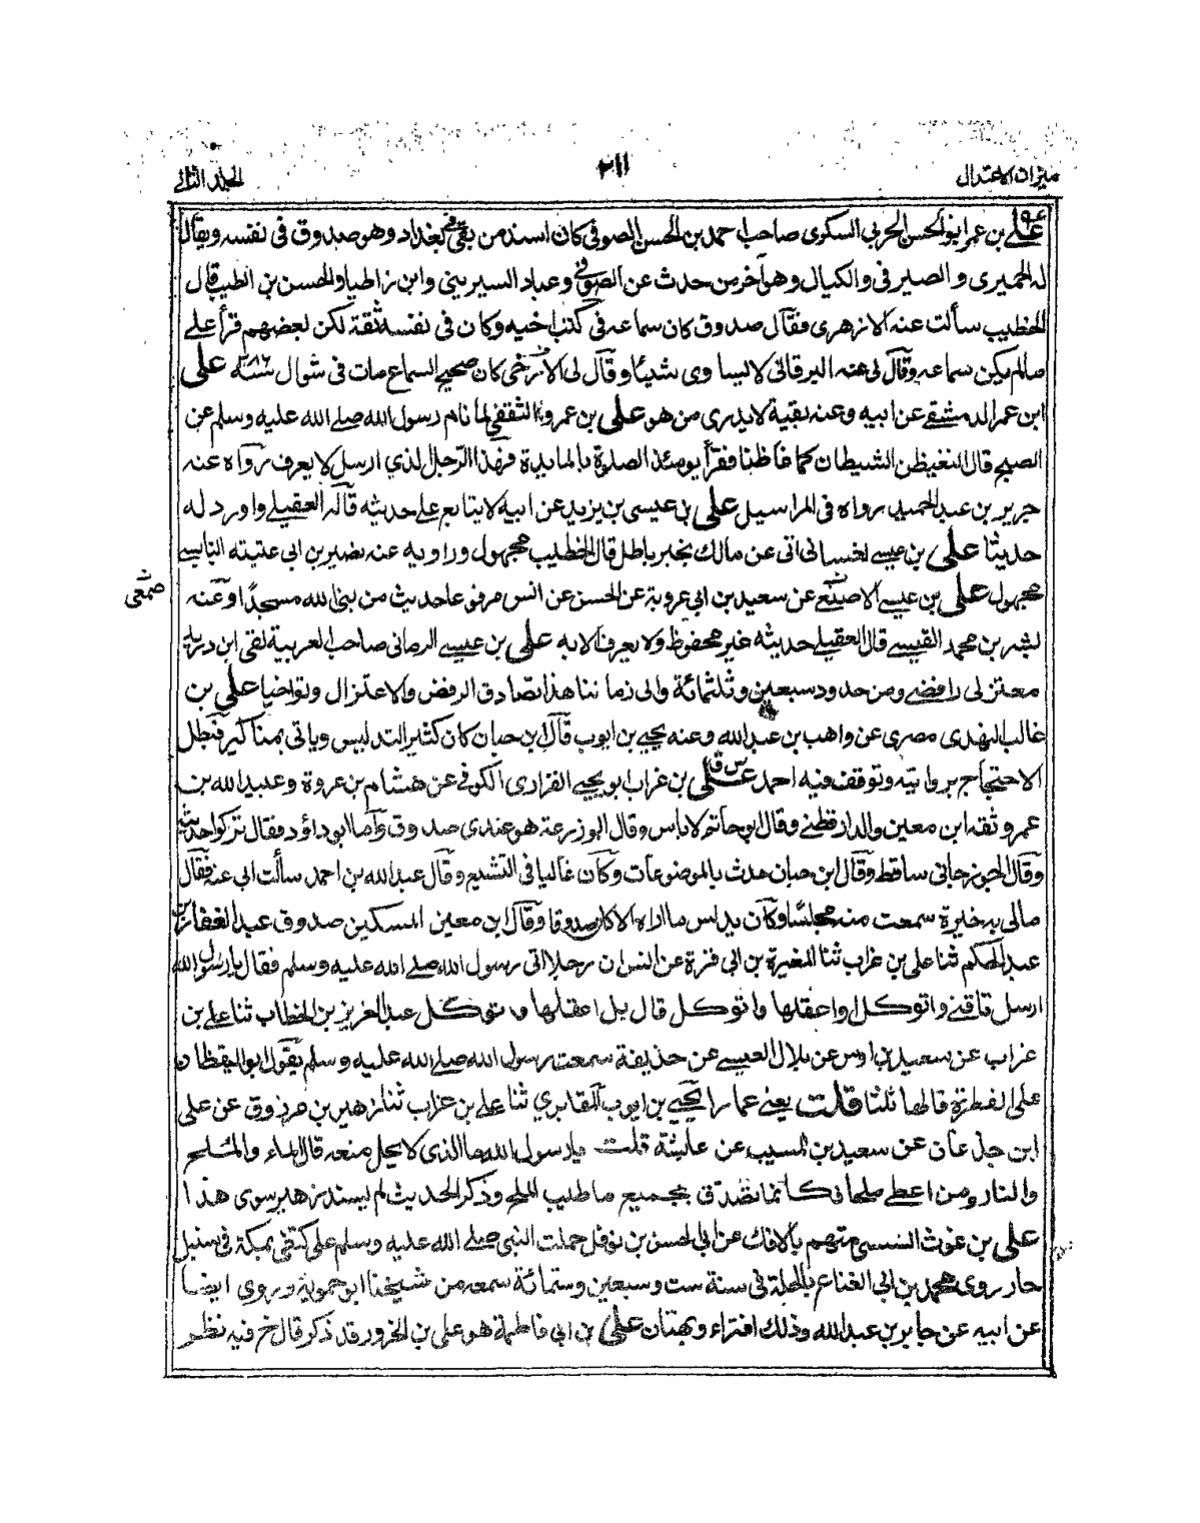 ميزان الاعتدال
٢١١
المجلد الثاني
علي بن عمر ابو الحسن الحربي السكري صاحب احمد بن الحسن الصوفي كان اسند من بقي ببغداد وهو صدوق في نفسه ويقال
له الحميري و الصيرفي والكيال وهو آخر من حدث عن الصوفي وعباد السيريني وابن زاطيا والحسن بن الطيب قال
الخطيب سألت عنه الازهري فقال صدوق كان سماعه في كتب اخيه وكان في نفسه ثقة لكن بعضهم قرأ علي
مالم يكن سماعه وقال لي عنه البرقاني لا يساوى شيئا وقال لي الازجي كان صحيح السماع مات في شوال سنة ٣٨٦ علي
ابن عمر الدمشقي عن ابيه وعنه بقية لا يدرى من هو علي بن عمرو الثقفي لما نام رسول الله صلى الله عليه وسلم عن
الصبح قال لنغيظن الشيطان كما غاظنا فقرأ يومئذ الصلوة بالمايدة فهذا الرجل لذي ارسل لا يعرف رواه عنه
جرير بن عبد الحميد رواه في المراسيل علي بن عيسى بن يزيد عن ابيه لا يتابع على حديثه قاله العقيلي واورد له
حديثا علي بن عيسى لغساني اتى عن مالك بخبر باطل قال الخطيب مجهول وراويه عنه نضير بن ابي عتيبته
مجهول علي بن عيسى الاصمعي عن سعيد بن ابي عروبة عن الحسن عن انس مرفوعا حديث من بنى لله مسجدا وعنه
صمعي
بشر بن محمد القيسي قال العقيلي حديثه غير محفوظ ولا يعرف الا به علي بن عيسى الرماني صاحب العربية لقى ابن دريد
معتزلي رافضي ومن حدود سبعين وثلثمائة والى زماننا هذا تصادق الرفض والاعتزال وتواخيا علي بن
غالب الفهدى مصرى عن واهب بن عبد الله وعنه يحيى بن ايوب قال ابن حبان كان كثير التدليس وياتى بمناكير فبطل
الاحتجاج بروايته وتوقف فيه احمد س ق علي بن غراب ابو يحيى الفزارى الكوفي عن هشام بن عروة وعبيد الله بن
عمر وثقه ابن معين والدارقطني وقال ابو حاتم لا باس وقال ابو زرعة هو عندى صدوق واما ابو داؤد فقال تركوا حديثه
وقال الجوزجانى ساقط وقال ابن حبان حدث بالموضوعات وكان غاليا في التشيع وقال عبد الله بن احمد سألت ابي عنه فقال
مالي به خيرة سمعت منه مجلسا وكان يدلس ما اراه الا كان صدوقا وقال ابن معين المسكين صدوق عبد الغفار بن
عبد الحكم ثنا علي بن غراب ثنا المغيرة بن ابى قرة عن انس ان رجلا اتى رسول الله صلى الله عليه وسلم فقال يا رسول الله
ارسل ناقتي واتوكل او اعقلها واتوكل قال بل اعقلها و توكل عبد العزيز بن الخطاب ثنا علي بن
غراب عن سعيد بن اوس عن بلال العبسي عن حذيفة سمعت رسول الله صلى الله عليه وسلم يقول ابو اليقظان
على الفطرة قالها ثلثا قلت يعني عمارا يحيى بن ايوب المقابري ثنا علي بن غراب ثنا زهير بن مرزوق عن علي
ابن جدعان عن سعيد بن المسيب عن عائشة قلت يا رسول الله ما الذى لا يحل منعه قال الماء والملح
والنار ومن اعطى ملحا فكانما تصدق بجميع ما طيب الملح وذكر الحديث لم يسند زهير سوى هذا
علي بن غوث متهم بالافك عن ابي الحسن بن نوفل حملت النبي صلى الله عليه وسلم على كتفى بمكة في سنبل
حار روى محمد بن ابي الغنائم بالحلة في سنة ست وسبعين وستمائة سمعه من شيخنا ابن حموية وروى ايضا
عن ابيه عن جابر بن عبد الله وذلك افتراء وبهتان علي بن ابي فاطمة هو علي بن الحزور قد ذكر قال خ فيه نظر